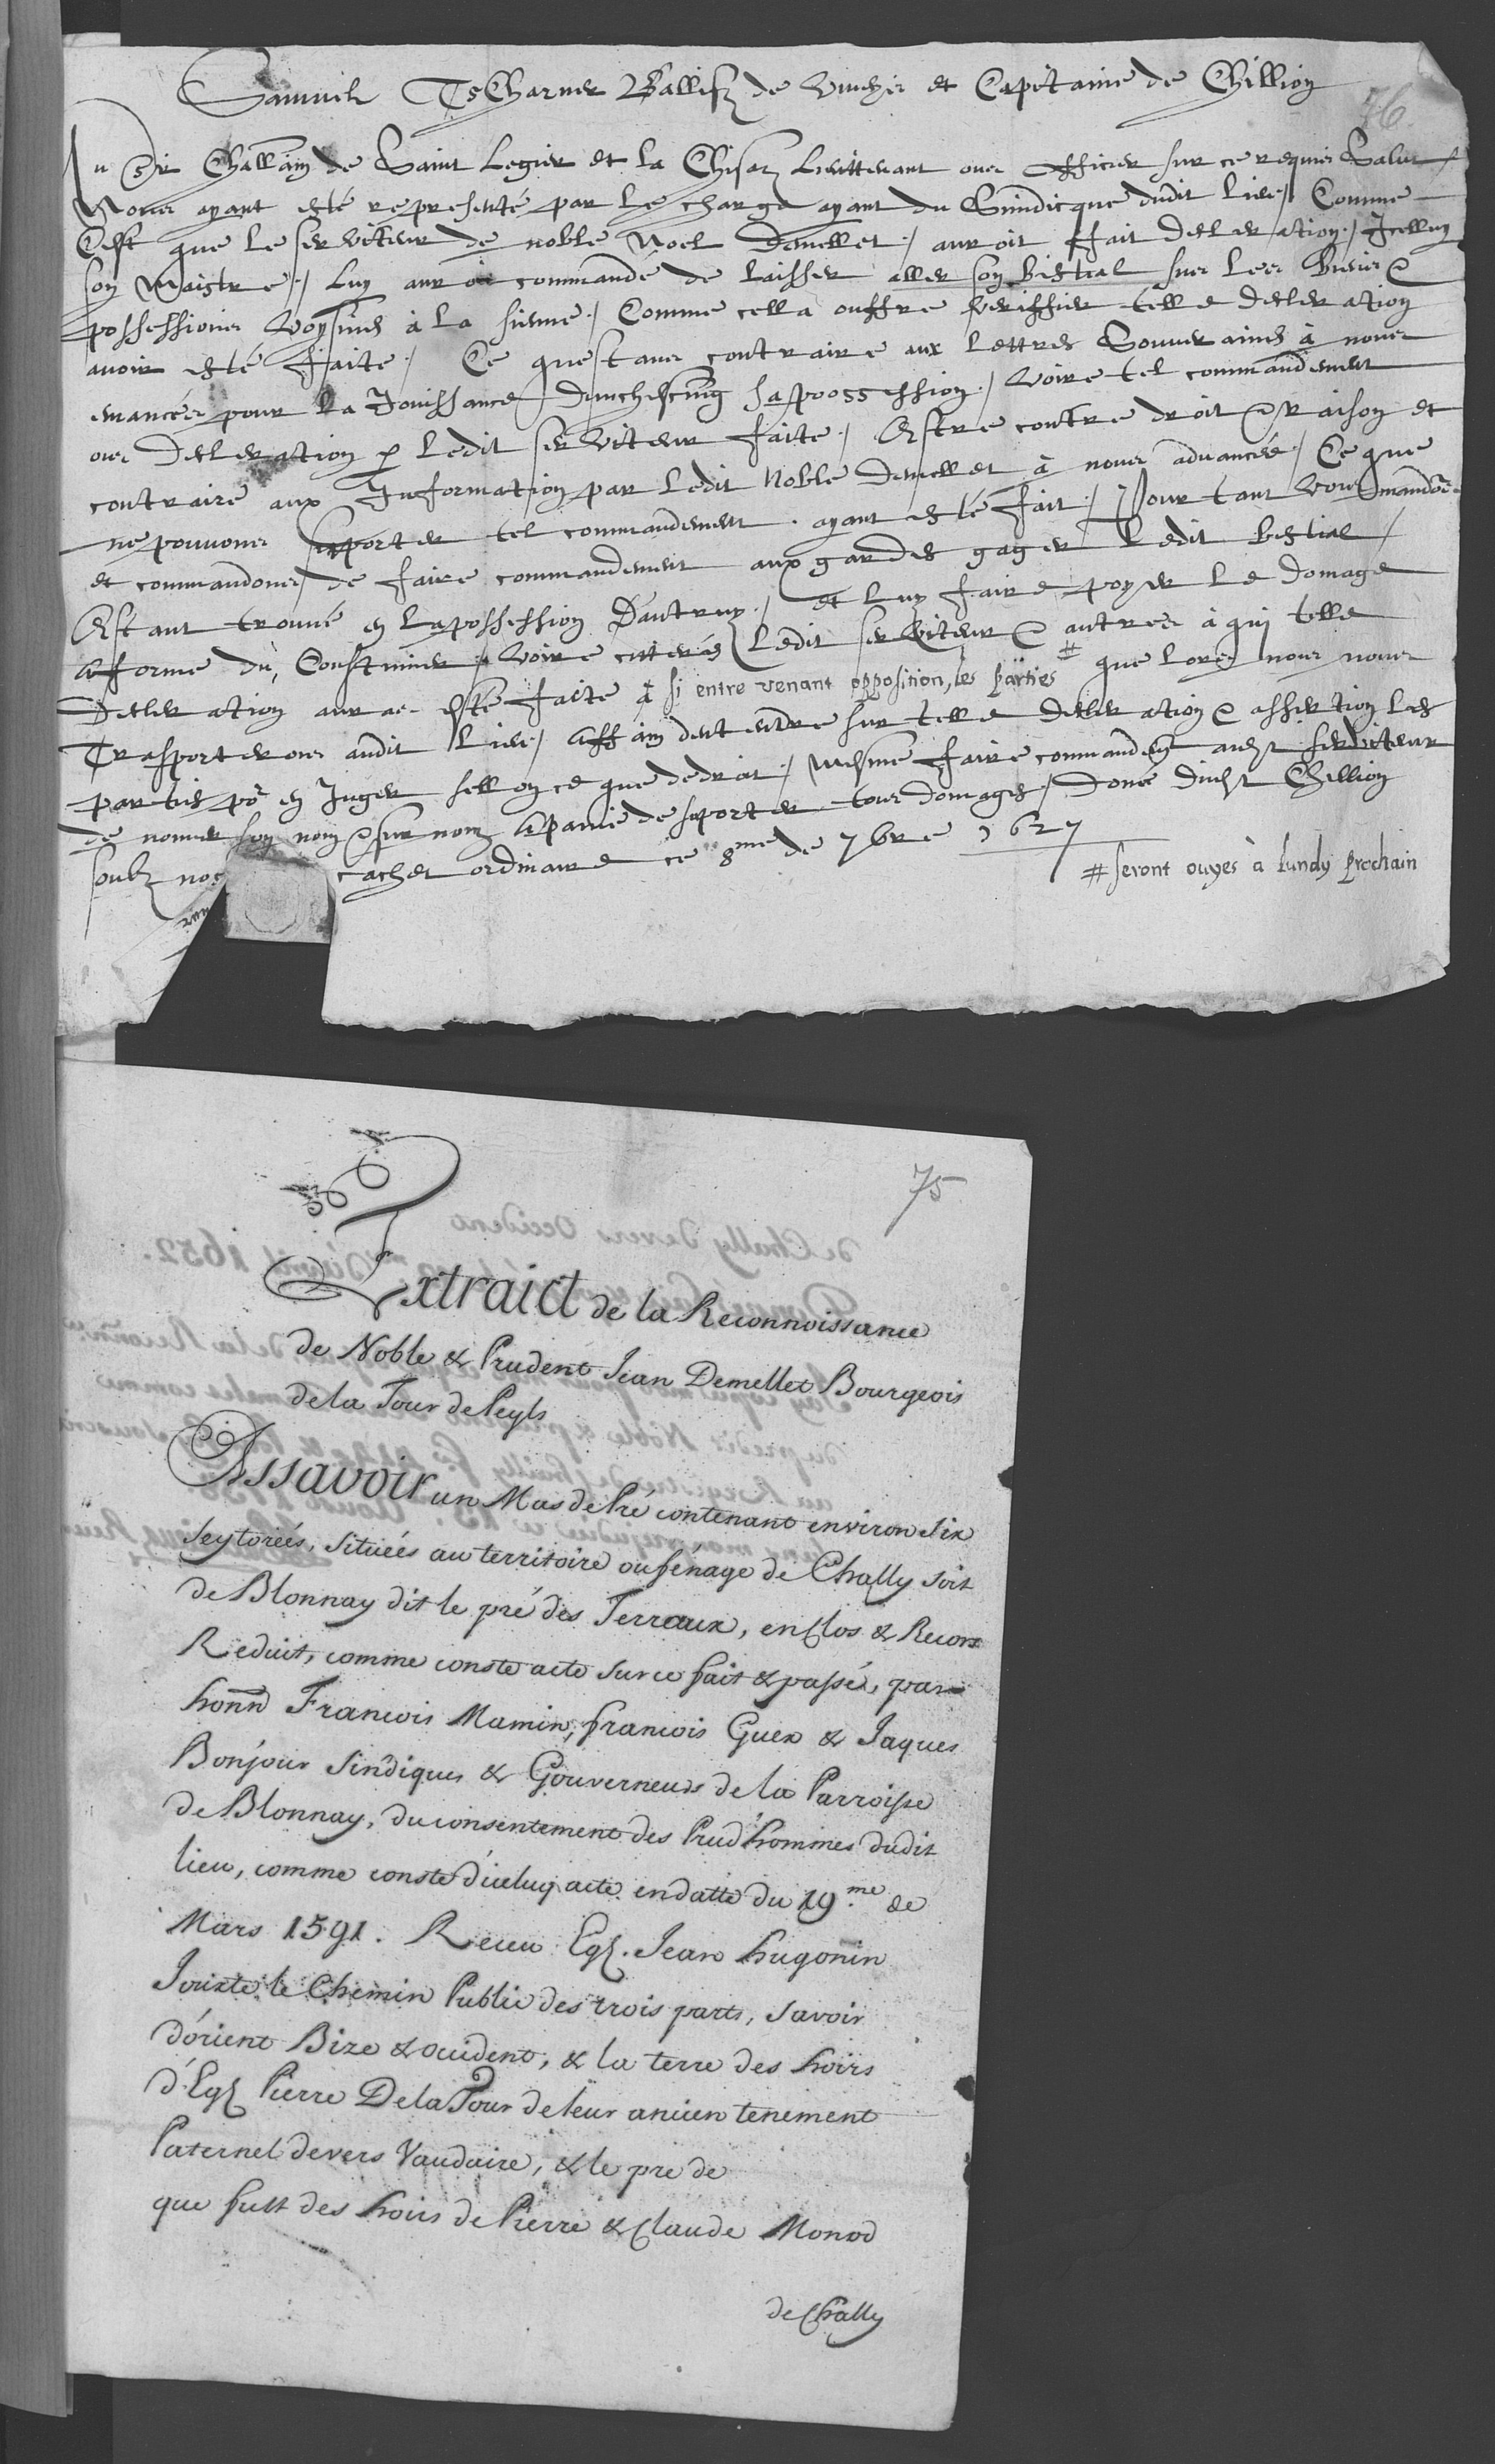 Samuel TsCharner Ballifz de Vivey et Capitaine de Chillion
76
Au Sr Challain de Saint Legier et la Chisaz Lieuttenant ou officier sur ce requis Salut
Nous ayant esté representé par le charge ayant du Sindicque dudit lieu / Comme
C'est que le serviteur de noble Noel Demellet / auroit fait declaration / Icelluy
son Maistre / luy auroit commandé de laisser aller son bestial sur les biens &
possessions Voysines à la sienne / Comme cella ouffre veriffier telle declaration
avoir esté faite / Ce questant contraire aux lettres Souveraines à nous
emancées pour la Jouissance dunchescung sa possession / Voire tel commandement
ou declaration p ledit serviteur faite / Estre contre droit & raison et
contraire aux Information par ledit Noble Demellet à nous advancée / Ce que
ne pouvons supporter tel commandement ayant esté fait / Pour tant vous mandons
et commandons de faire commandement aux gardes gager ledit bestial /
Estant trouvé en la possession D'autruy / et luy faire poyer le domage
a forme du Coustumier / Voire citterés ledit serviteur & autres à qui telle
declaration aurae esté faite à si entre venant opposition, les parties # que lors nous nous
Trasporterons audit lieu / affain dentendre sur telle declaration & assertion les
parties po en Juger sellon ce que de droit / Mesme faire commandemt audt serviteur
de nommer son nom & surnom a paine de suporter tous domages / Donné Audt Chillion
soubz nos cachet ordinaire ce 8me de 7bre 1627
# seront ouyes à lundy prochain
75
Extraict de la Reconnoissance
de Noble & Prudent Jean Demellet Bourgeois
de la Tour de Peyls
Assavoir un Mas de Pré contenant environ six
seytoreés, situeés au territoire ou fénage de Chally soit
de Blonnay dit le pré des Terraux, enclos & Records
Reduit, comme conste acte sur ce fait & passé, par
honn François Mamin, francois Guex & Jaques
Bonjour Sindiques & Gouverneurs de la Parroisse
de Blonnay, du consentement des Prud'hommes dudit
lieu, comme conste d'iceluy acte en datte du 19.me de
Mars 1591. Receu Eg. Jean Hugonin
Jouxte le Chemin Public des trois parts, savoir
d'orient Bize & occident, & la terre des hoirs
d'Eg Pierre De la Tour de leur ancien tenement
Paternel devers Vaudaire, & le pre de
que fust des hoirs de Pierre & Claude Monod
de Chally